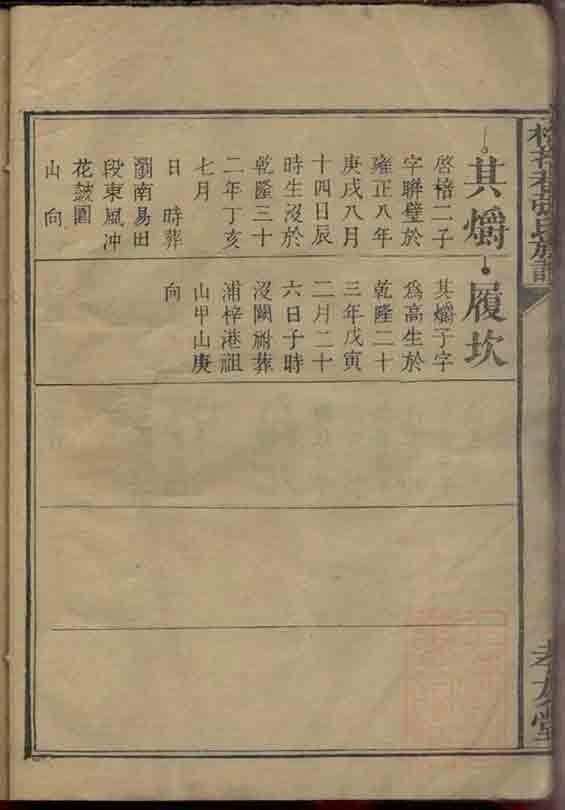 胡氏族譜
孝友堂
其爝
啓楷二子
字聯璧於
雍正八年
庚戌八月
十四日辰
時生沒於
乾隆三十
二年丁亥
七月
日 時葬
瀏南易田
段東風冲
花鼓圓
山 向
履坎
其爝子字
為高生於
乾隆二十
三年戊寅
二月二十
六日子時
沒闕祔葬
浦梓港祖
山甲山庚
向